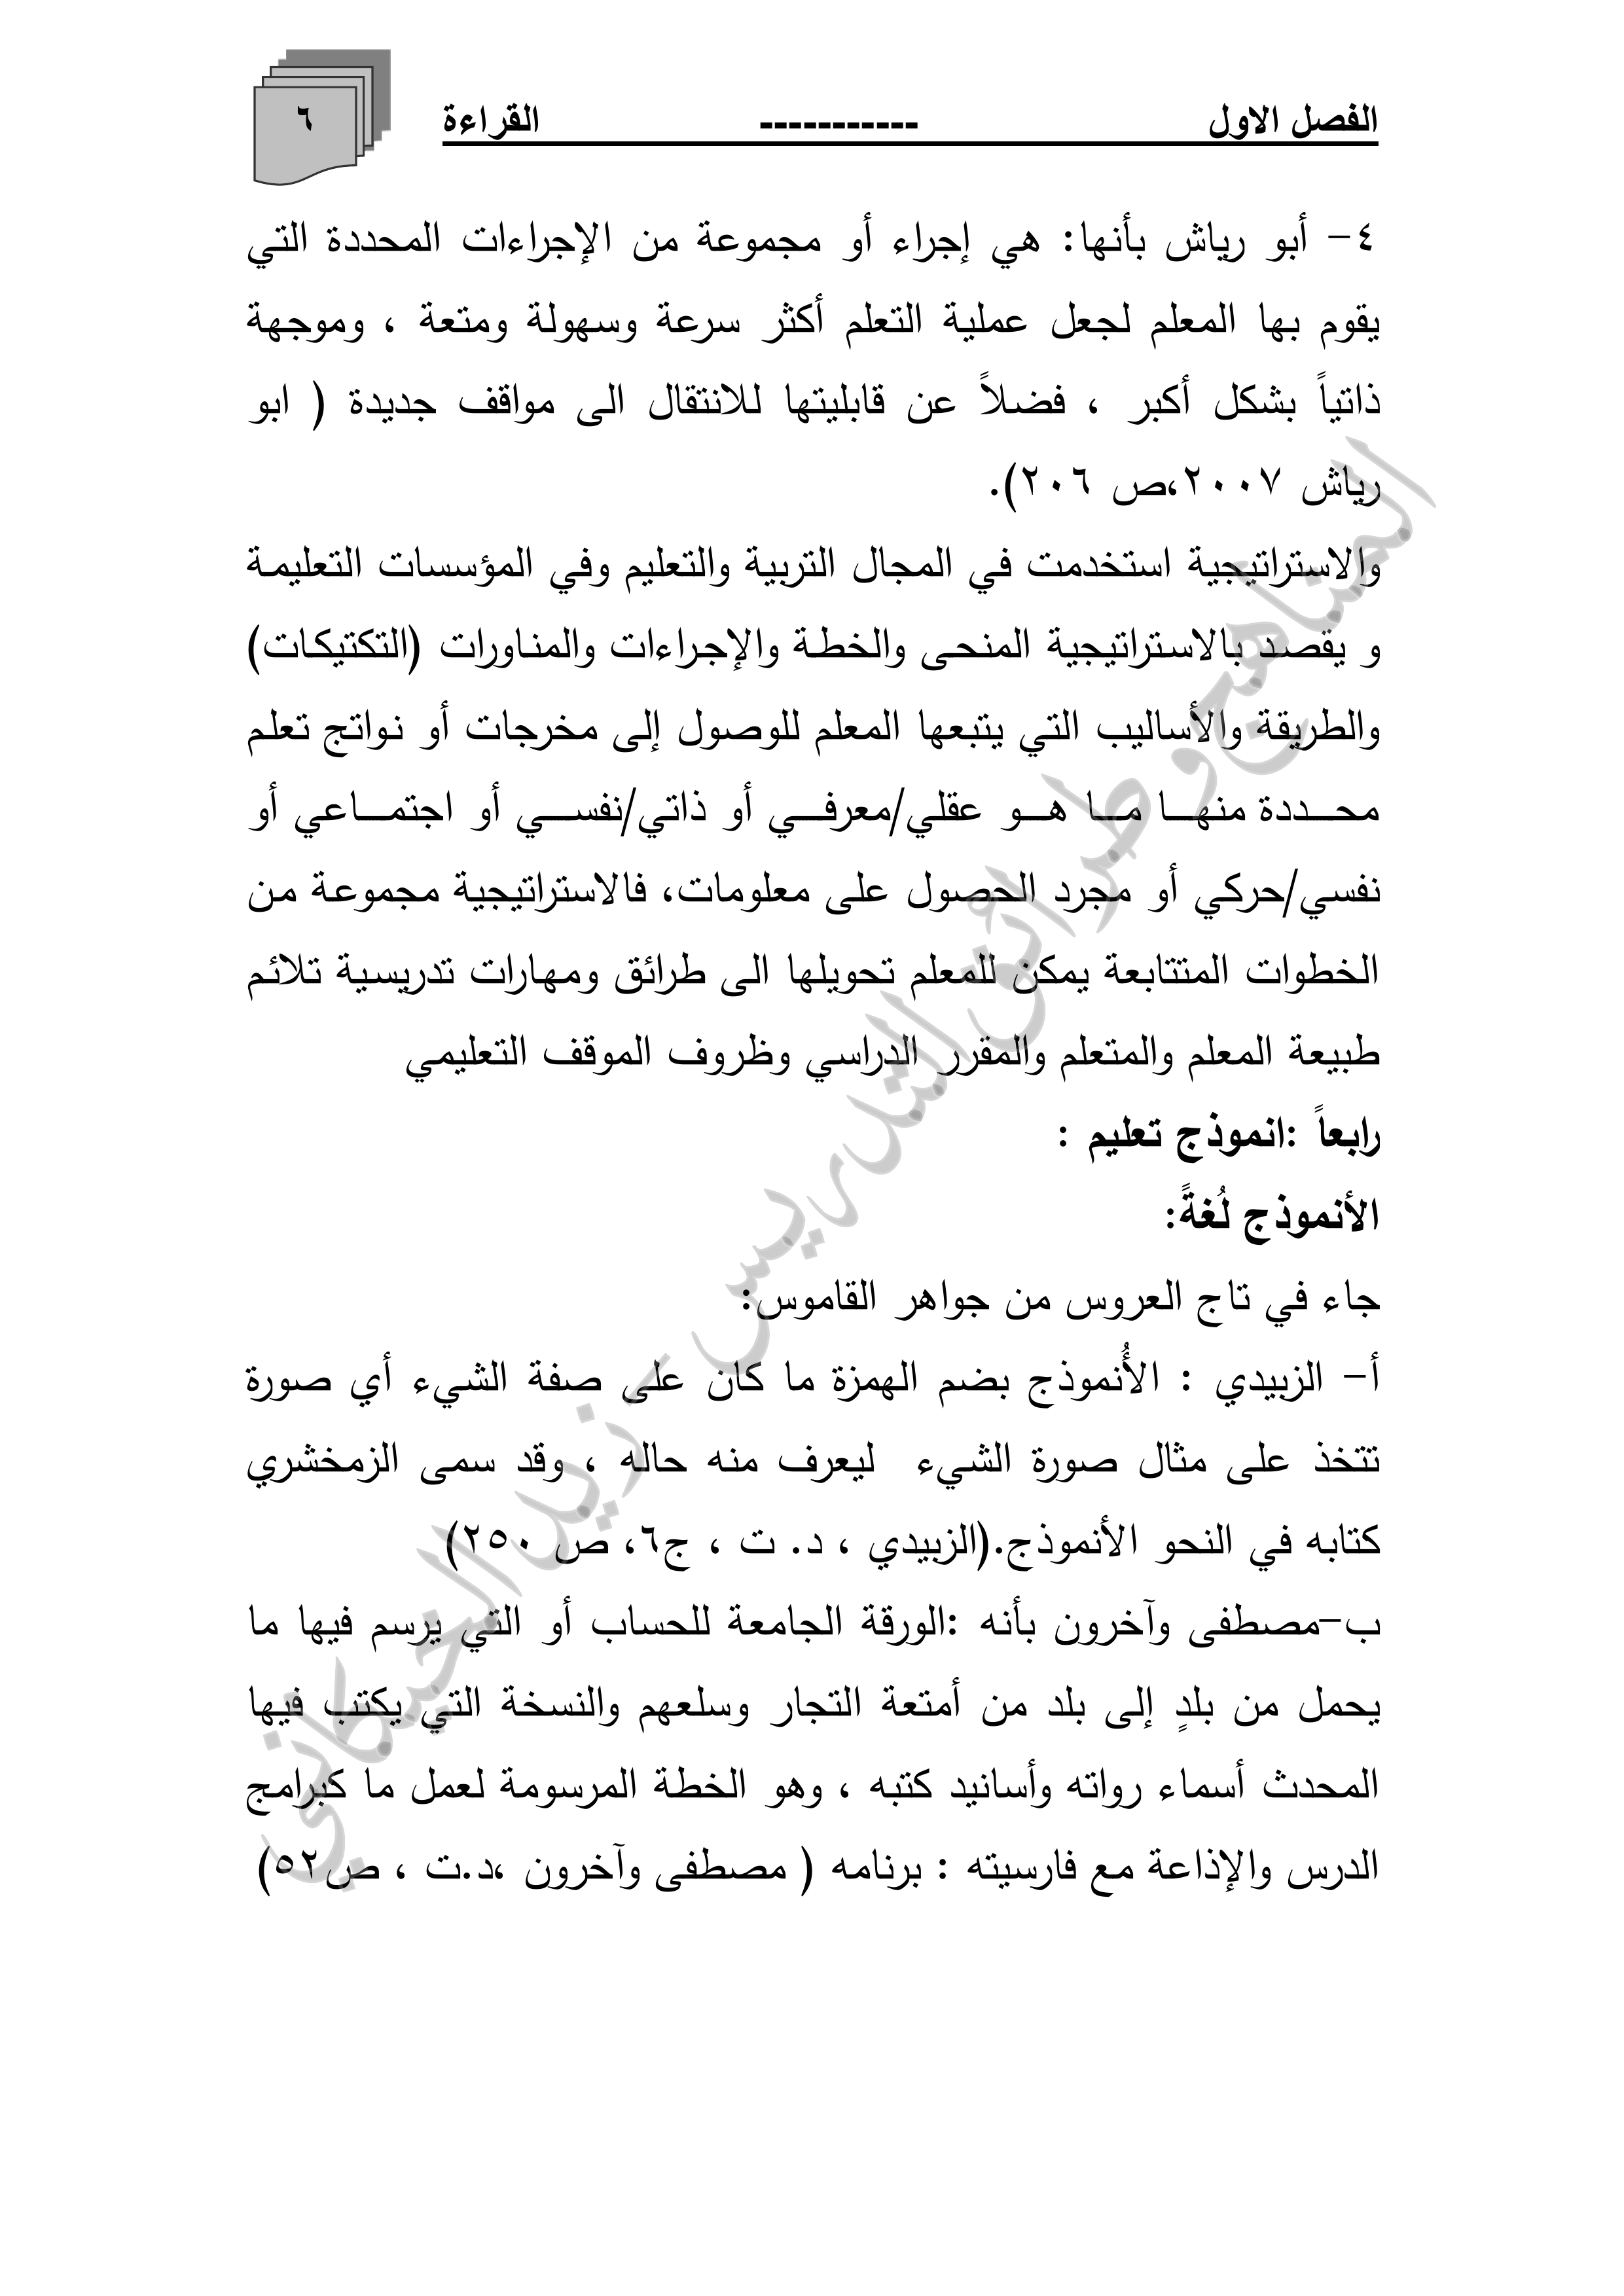 الفصل الاول ----------- القراءة
٦
٤- أبو رياش بأنها: هي إجراء أو مجموعة من الإجراءات المحددة التي
يقوم بها المعلم لجعل عملية التعلم أكثر سرعة وسهولة ومتعة ، وموجهة
ذاتياً بشكل أكبر ، فضلاً عن قابليتها للانتقال الى مواقف جديدة ( ابو
رياش ٢٠٠٧،ص ٢٠٦).
والاستراتيجية استخدمت في المجال التربية والتعليم وفي المؤسسات التعليمة
و يقصد بالاستراتيجية المنحى والخطة والإجراءات والمناورات (التكتيكات)
والطريقة والأساليب التي يتبعها المعلم للوصول إلى مخرجات أو نواتج تعلم
محـــددة منهـــا مـــا هـــو عقلي/معرفـــي أو ذاتي/نفســـي أو اجتمـــاعي أو
نفسي/حركي أو مجرد الحصول على معلومات، فالاستراتيجية مجموعة من
الخطوات المتتابعة يمكن للمعلم تحويلها الى طرائق ومهارات تدريسية تلائم
طبيعة المعلم والمتعلم والمقرر الدراسي وظروف الموقف التعليمي
رابعاً :انموذج تعليم :
الأنموذج لُغةً:
جاء في تاج العروس من جواهر القاموس:
أ- الزبيدي : الأُنموذج بضم الهمزة ما كان على صفة الشيء أي صورة
تتخذ على مثال صورة الشيء ليعرف منه حاله ، وقد سمى الزمخشري
كتابه في النحو الأنموذج.(الزبيدي ، د. ت ، ج٦، ص ٢٥٠)
ب-مصطفى وآخرون بأنه :الورقة الجامعة للحساب أو التي يرسم فيها ما
يحمل من بلدٍ إلى بلد من أمتعة التجار وسلعهم والنسخة التي يكتب فيها
المحدث أسماء رواته وأسانيد كتبه ، وهو الخطة المرسومة لعمل ما كبرامج
الدرس والإذاعة مع فارسيته : برنامه ( مصطفى وآخرون ،د.ت ، ص٥٢)
المناهج وطرائق التدريس - زيد الخيكاني